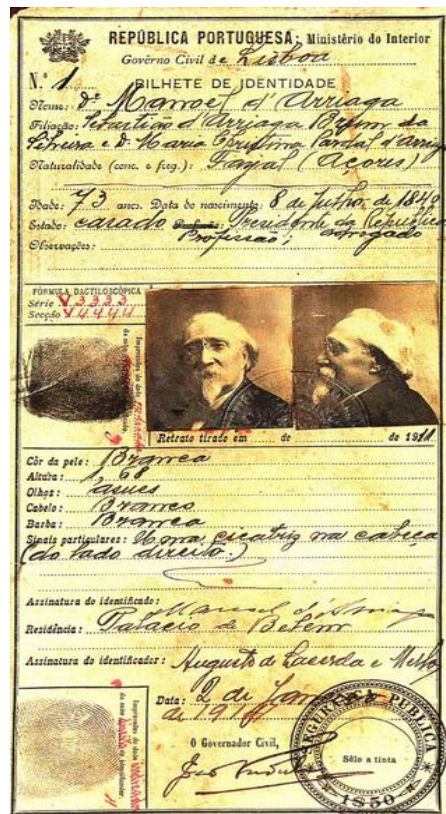 REPÚBLICA PORTUGUESA; Ministério do Interior
Govêrno Civil de Lisboa
N.º 1
BILHETE DE IDENTIDADE
Nome: Dr Manoel d'Arriaga
Filiação: Sebastião d'Arriaga Brum da
Silveira e D. Maria Christina Pardal d'Arriaga
Naturalidade (conc. e freg.): Fayal (Açores)
Idade: 73 anos. Data do nascimento: 8 de Julho de 1840
Estado: casado Profissão: Presidente da Republica
Observações: Profissão; advogado
FÓRMULA DACTILOSCÓPICA
Série V 3333
Secção V 4444
Impressões do dedo
da mão
Retrato tirado em de de 1911
Côr da pele: Branca
Altura: 1,68
Olhos: asues
Cabelo: Branco
Barba: Branca
Sinais particulares: Uma cicatriz na cabeça
(do lado direito.)
Assinatura do identificado: Manuel d'Arriaga
Residência: Palacio de Belem
Assinatura do identificador: Augusto de Lacerda e Mello
Impressões do dedo
da mão direita do identificador
Data: 2 de
de 191
O Governador Civil,
SEGURANÇA PUBLICA
Sêlo a tinta
1850